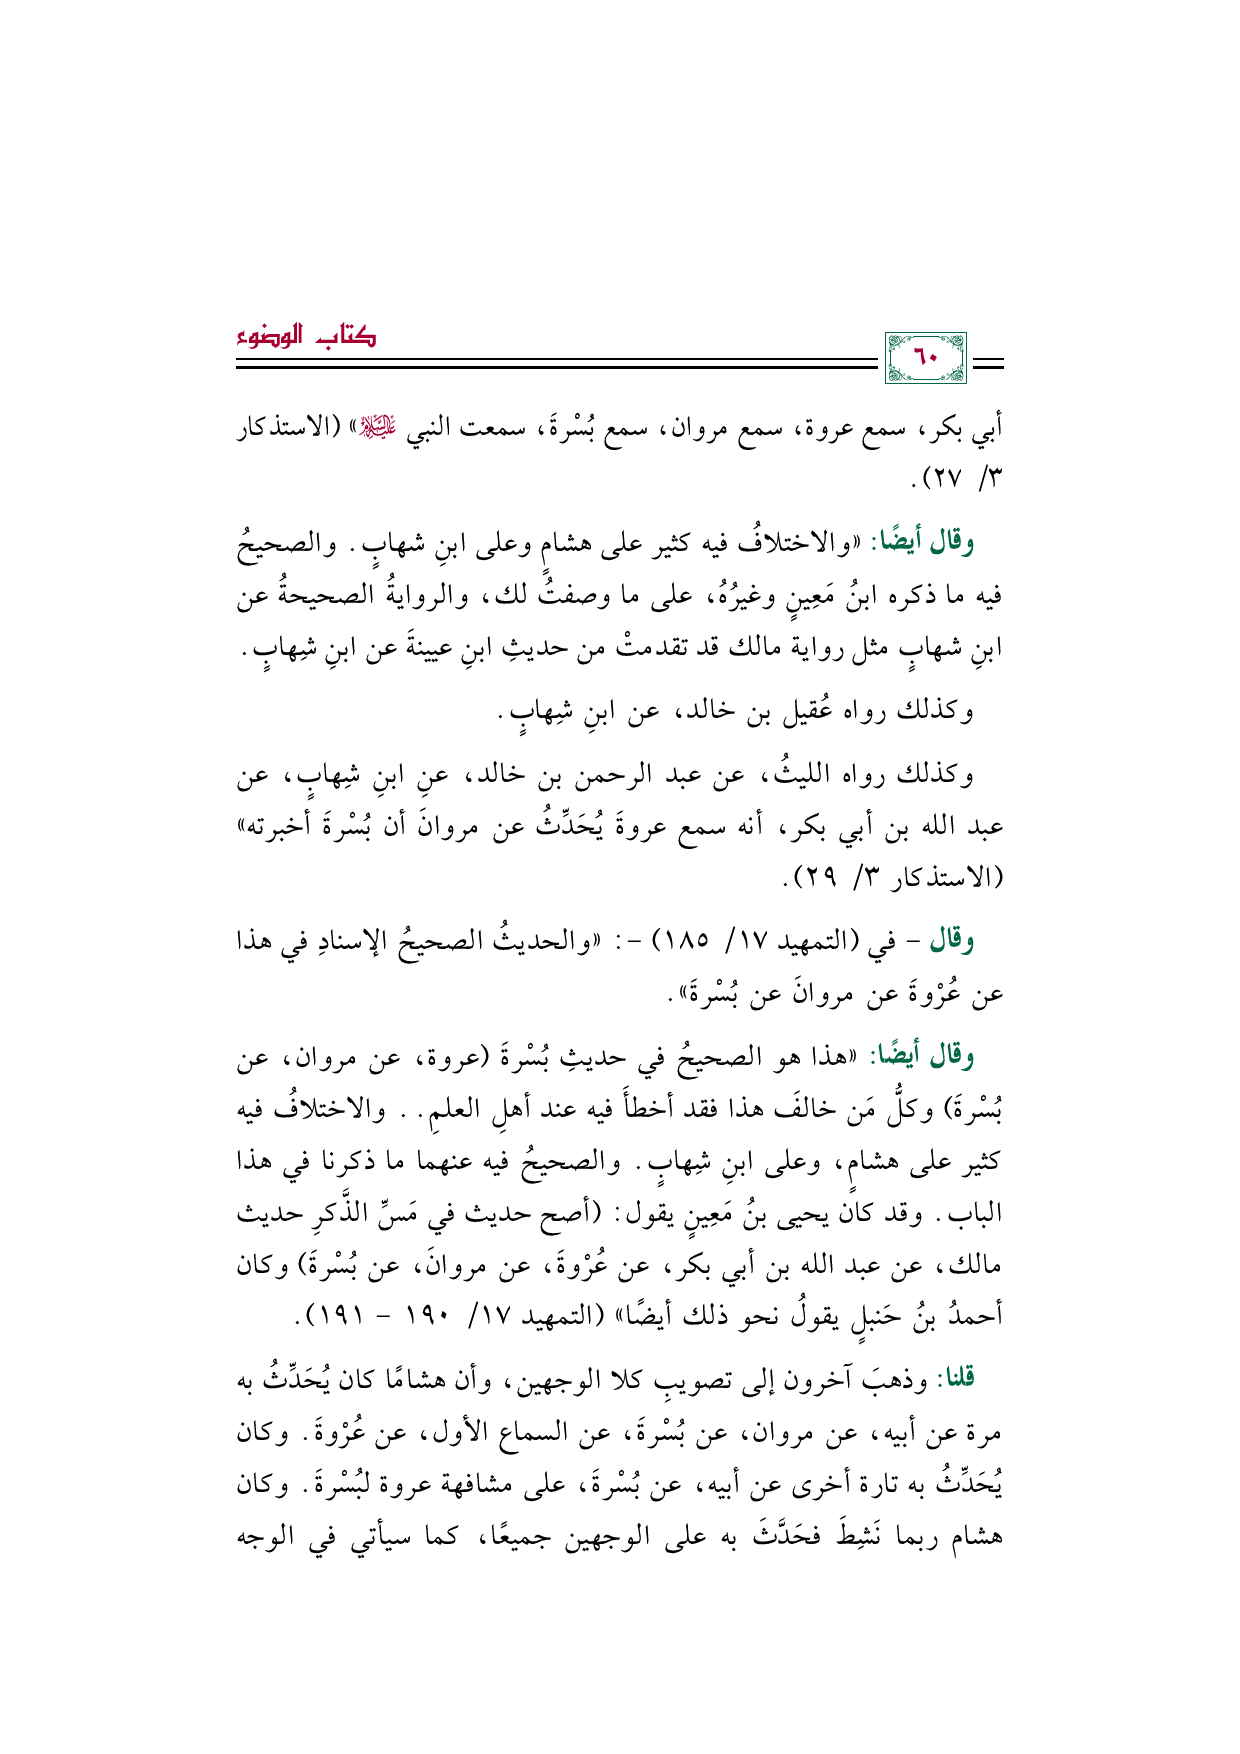 كتاب الوضوء
٦٠
أبي بكر، سمع عروة، سمع مروان، سمع بُسْرةَ، سمعت النبي ﷺ» (الاستذكار
٣/ ٢٧).
وقال أيضًا: «والاختلافُ فيه كثير على هشامٍ وعلى ابنِ شهابٍ. والصحيحُ
فيه ما ذكره ابنُ مَعِينٍ وغيرُهُ، على ما وصفتُ لك، والروايةُ الصحيحةُ عن
ابنِ شهابٍ مثل رواية مالك قد تقدمتْ من حديثِ ابنِ عيينةَ عن ابنِ شِهابٍ.
وكذلك رواه عُقيل بن خالد، عن ابنِ شِهابٍ.
وكذلك رواه الليثُ، عن عبد الرحمن بن خالد، عنِ ابنِ شِهابٍ، عن
عبد الله بن أبي بكر، أنه سمع عروةَ يُحَدِّثُ عن مروانَ أن بُسْرةَ أخبرته»
(الاستذكار ٣/ ٢٩).
وقال – في (التمهيد ١٧/ ١٨٥) –: «والحديثُ الصحيحُ الإسنادِ في هذا
عن عُرْوةَ عن مروانَ عن بُسْرةَ».
وقال أيضًا: «هذا هو الصحيحُ في حديثِ بُسْرةَ (عروة، عن مروان، عن
بُسْرةَ) وكلُّ مَن خالفَ هذا فقد أخطأَ فيه عند أهلِ العلمِ. . والاختلافُ فيه
كثير على هشامٍ، وعلى ابنِ شِهابٍ. والصحيحُ فيه عنهما ما ذكرنا في هذا
الباب. وقد كان يحيى بنُ مَعِينٍ يقول: (أصح حديث في مَسِّ الذَّكرِ حديث
مالك، عن عبد الله بن أبي بكر، عن عُرْوةَ، عن مروانَ، عن بُسْرةَ) وكان
أحمدُ بنُ حَنبلٍ يقولُ نحو ذلك أيضًا» (التمهيد ١٧/ ١٩٠ – ١٩١).
قلنا: وذهبَ آخرون إلى تصويبِ كلا الوجهين، وأن هشامًا كان يُحَدِّثُ به
مرة عن أبيه، عن مروان، عن بُسْرةَ، عن السماع الأول، عن عُرْوةَ. وكان
يُحَدِّثُ به تارة أخرى عن أبيه، عن بُسْرةَ، على مشافهة عروة لبُسْرةَ. وكان
هشام ربما نَشِطَ فحَدَّثَ به على الوجهين جميعًا، كما سيأتي في الوجه